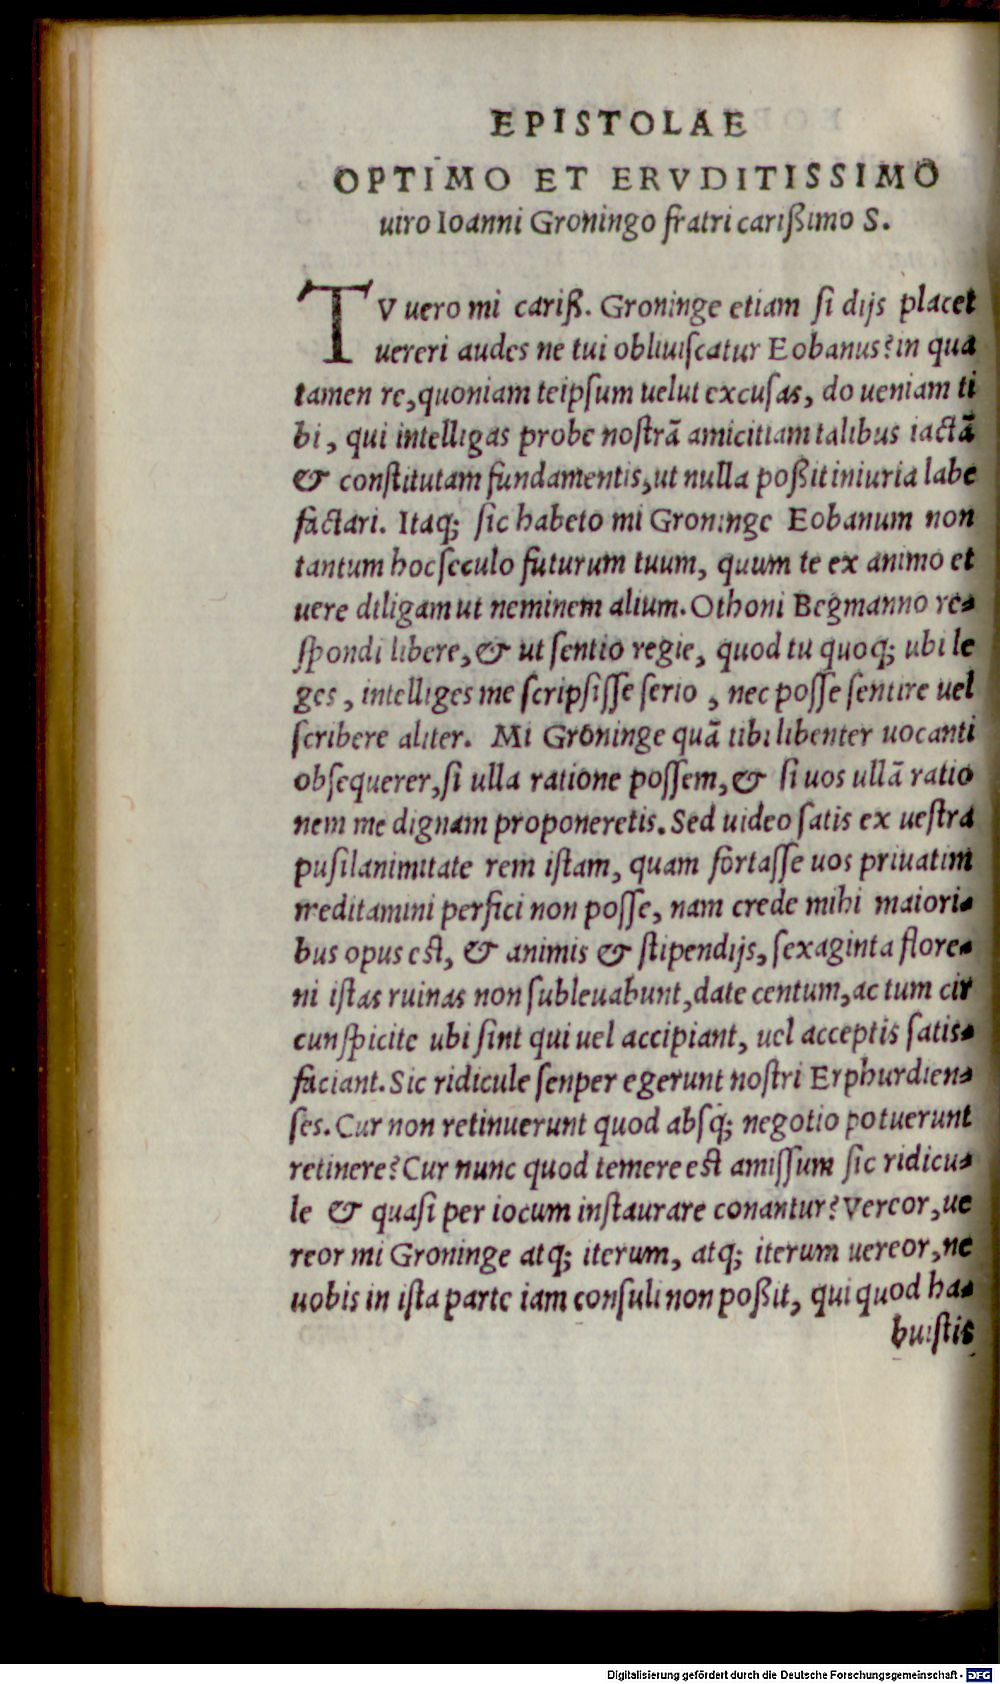 EPISTOLAE
OPTIMO ET ERVDITISSIMO
uiro Ioanni Groningo fratri carißimo S.
TV uero mi cariß. Groninge etiam ſi dijs placet
uereri audes ne tui obliuiſcatur Eobanus? in qua
tamen re, quoniam teipſum uelut excuſas, do ueniam ti
bi, qui intelligas probe noſtrã amicitiam talibus iactã
& conſtitutam fundamentis, ut nulla poßit iniuria labe
factari. Itaq; ſic habeto mi Groninge Eobanum non
tantum hoc ſeculo futurum tuum, quum te ex animo et
uere diligam ut neminem alium. Othoni Begmanno re-
ſpondi libere, & ut ſentio regie, quod tu quoq; ubi le
ges, intelliges me ſcripſiſſe ſerio, nec poſſe ſentire uel
ſcribere aliter. Mi Groninge quã tibi libenter uocanti
obſequerer, ſi ulla ratione poſſem, & ſi uos ullã ratio
nem me dignam proponeretis. Sed uideo ſatis ex ueſtra
puſilanimitate rem iſtam, quam fortaſſe uos priuatim
meditamini perfici non poſſe, nam crede mihi maiori-
bus opus eſt, & animis & ſtipendijs, ſexaginta flore-
ni iſtas ruinas non ſubleuabunt, date centum, ac tum cir
cunſpicite ubi ſint qui uel accipiant, uel acceptis ſatis-
faciant. Sic ridicule ſenper egerunt noſtri Erphurdien-
ſes. Cur non retinuerunt quod abſq; negotio potuerunt
retinere? Cur nunc quod temere eſt amiſſum ſic ridicu-
le & quaſi per iocum inſtaurare conantur? Vereor, ue
reor mi Groninge atq; iterum, atq; iterum uereor, ne
uobis in iſta parte iam conſuli non poßit, qui quod ha-
buiſtis
Digitalisierung gefördert durch die Deutsche Forschungsgemeinschaft - DFG